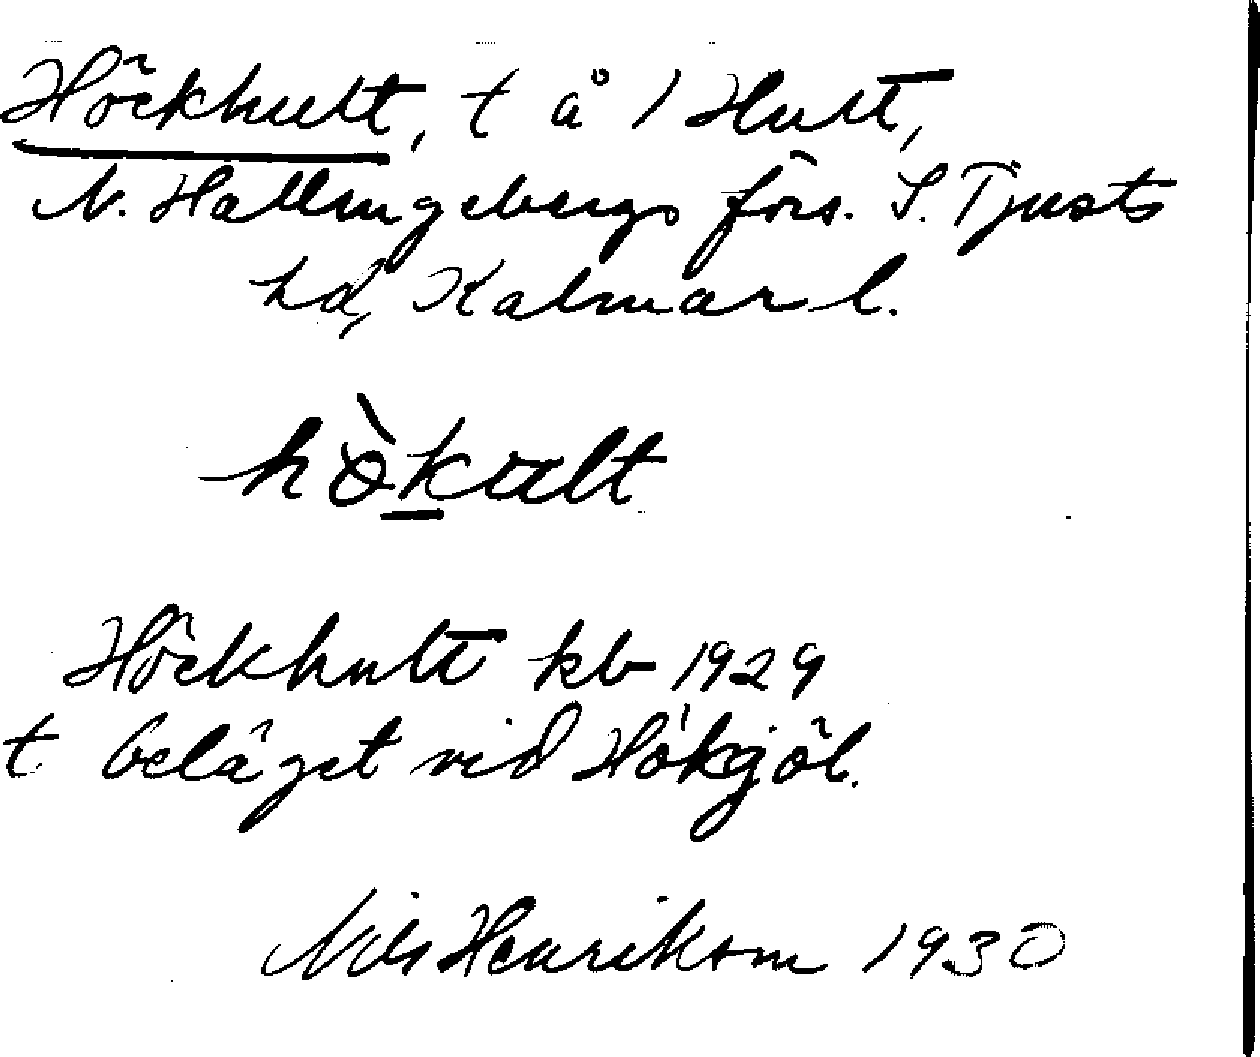 Höckhult, t å 1 Hult,
N. Hallingebergs förs. S. Tjusts
hd, Kalmar l.
hòkult
Höckhult kb 1929
t beläget vid Hökgöl.
Nils Henrikson 1930